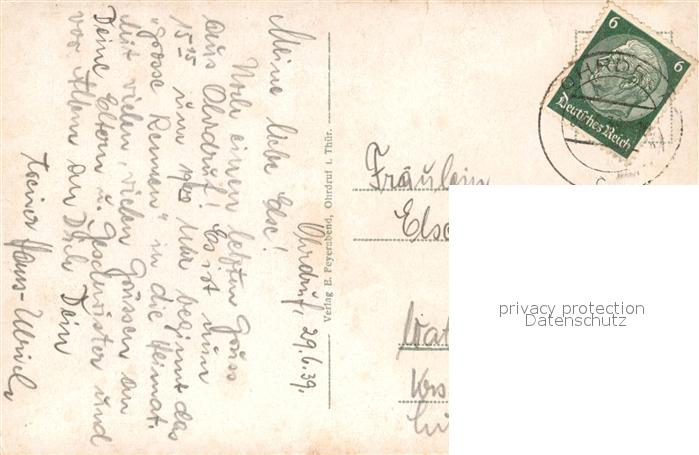 Ohrdruf, 29.6.39.
Meine liebe Else!
Noch einen letzten Gruss
aus Ohrdruf! Es ist nun
15 25 um Uhr beginnt das
"grosse Rennen" in die Heimat.
Mit vielen, vielen Grüssen an
Deine Eltern u. Geschwister und
vor Allem an Dich Dein
treuer Hans-Ulrich
Verlag E. Feyerabend, Ohrdruf i. Thür.
Fräulein
Else
6
6
Deutsches Reich
OHRDRUF
privacy protection
Datenschutz